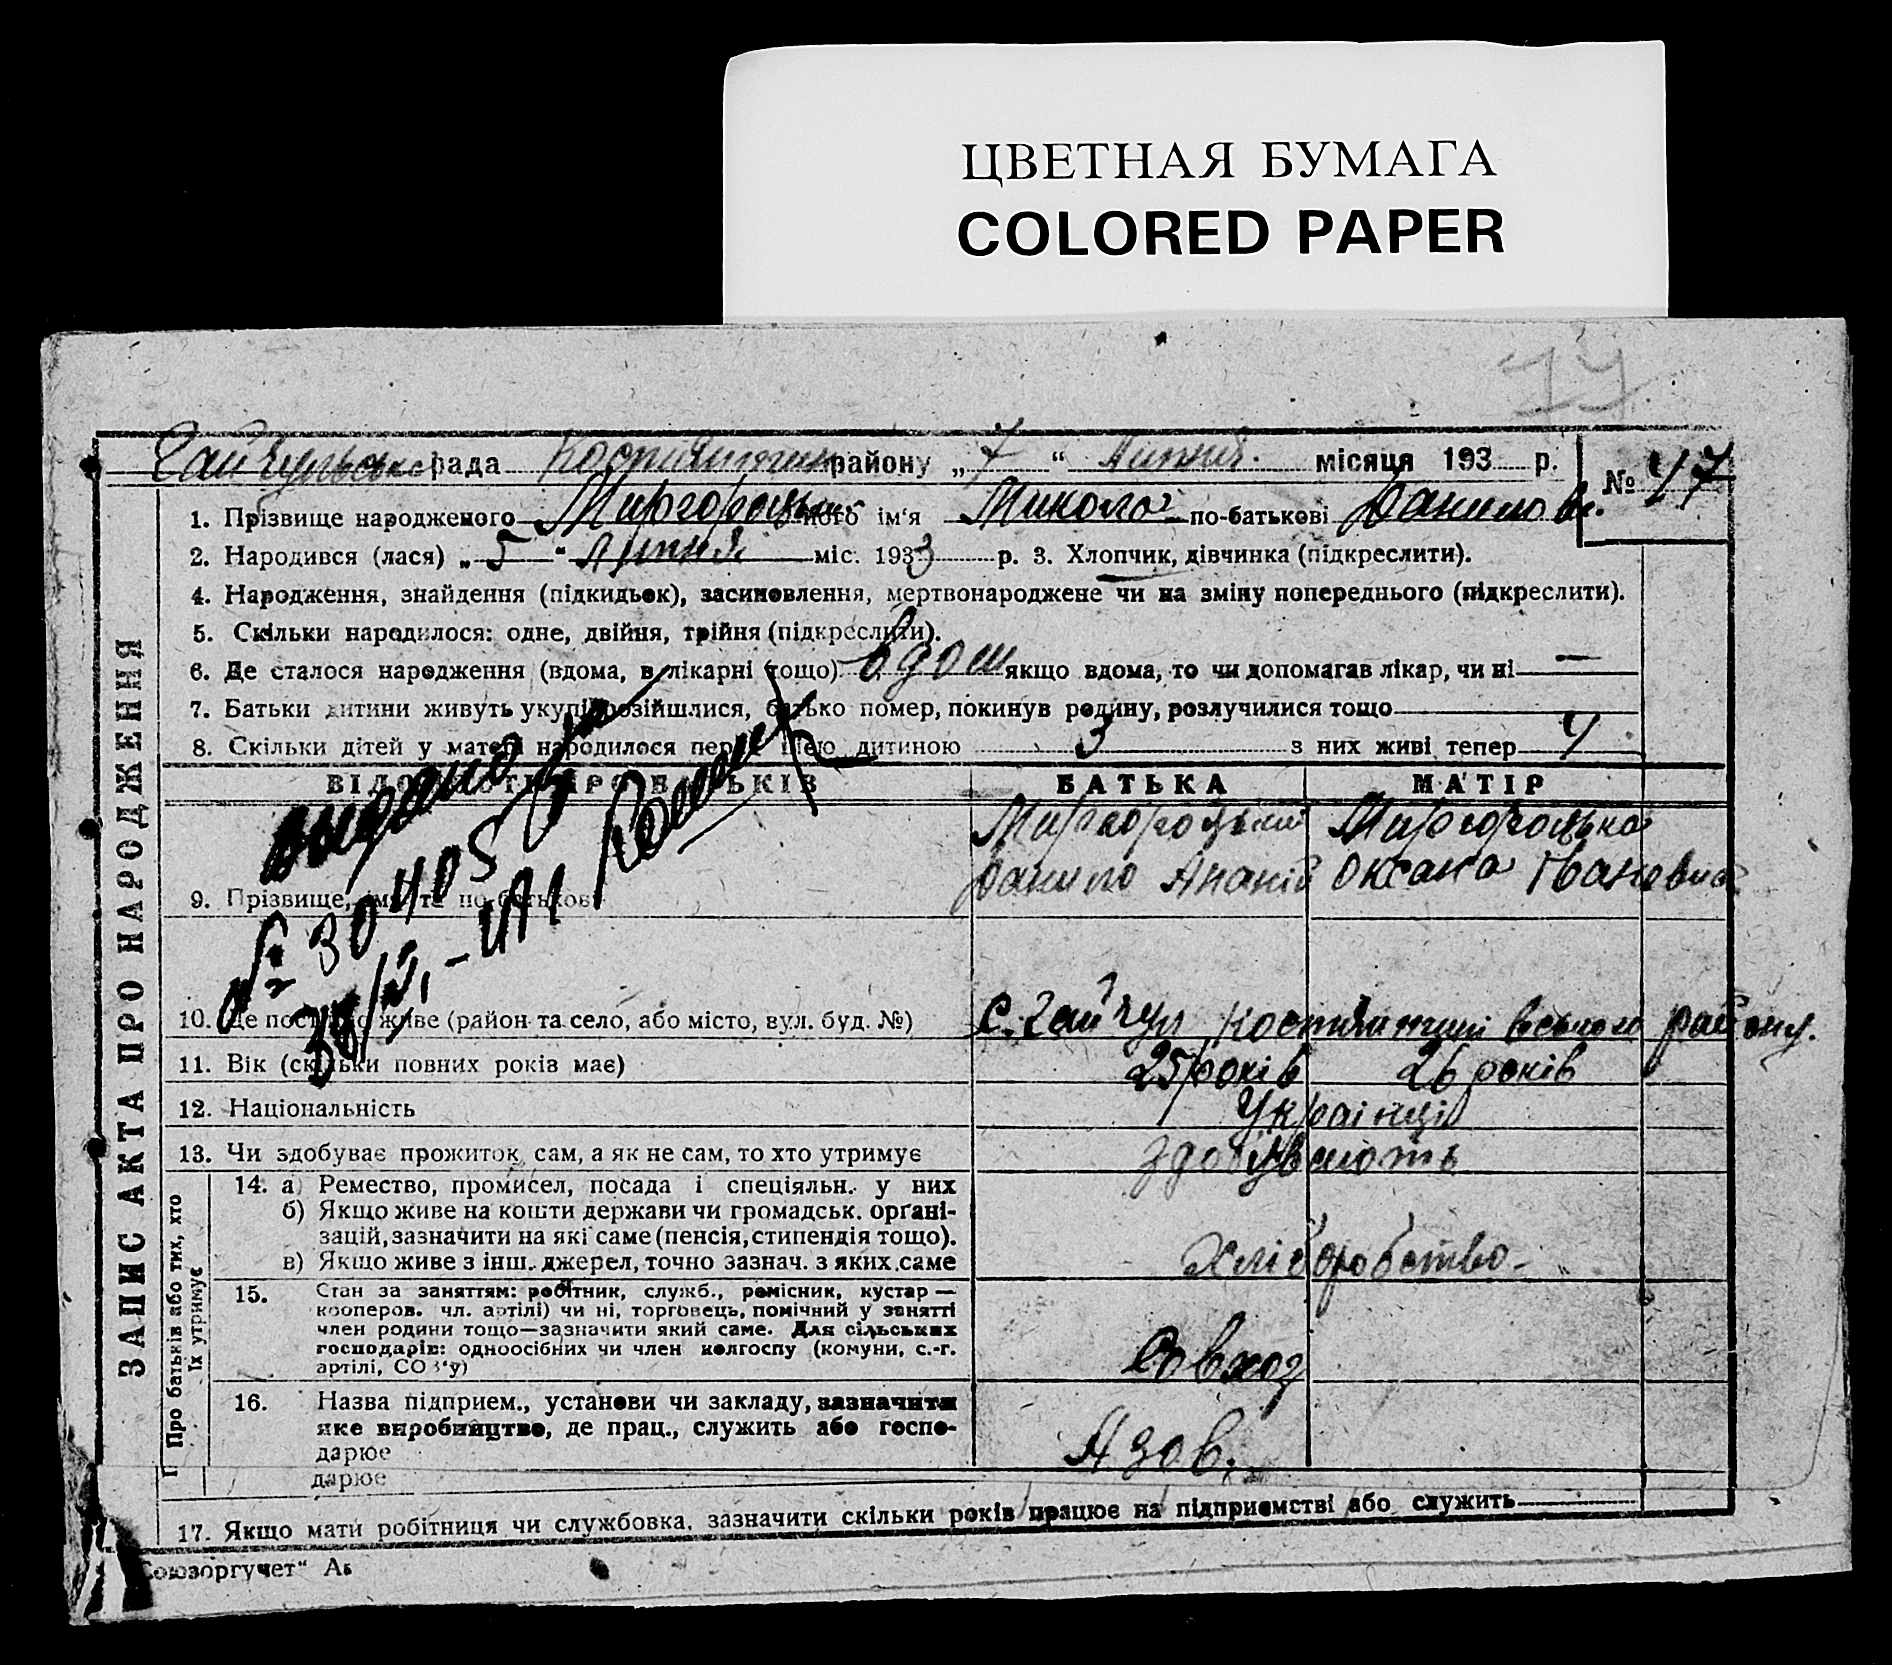 ЦВЕТНАЯ БУМАГА
COLORED PAPER
Гайчульська рада району „7“ Липня місяця 193 р. № 47
1. Прізвище народженого Миргородський ім'я Микола по-батькові Данилов.
2. Народився (лася) „5“ Липня міс. 1933 р. 3. Хлопчик, дівчинка (підкреслити).
4. Народження, знайдення (підкидьок), засиновлення, мертвонароджене чи на зміну попереднього (підкреслити).
5. Скільки народилося: одне, двійня, трійня (підкреслити).
6. Де сталося народження (вдома, в лікарні тощо) вдом якщо вдома, то чи допомагав лікар, чи ні —
7. Батьки дитини живуть укупі, розійшлися, батько помер, покинув родину, розлучилися тощо
8. Скільки дітей у матері народилося перед цією дитиною 3 з них живі тепер 4
ВІДОМОСТІ ПРО БАТЬКІВ БАТЬКА МАТІР
Миргородський Миргородська
9. Прізвище, ім'я та по-батькові Данило Ананій Оксана Івановна
видано
№ 30405
10. Де постійно живе (район та село, або місто, вул. буд. №) с. Гайчул району.
11. Вік (скільки повних років має) 25 років 26 років
12. Національність Українці
13. Чи здобуває прожиток сам, а як не сам, то хто утримує здобувають
14. а) Ремество, промисел, посада і спеціяльн. у них
б) Якщо живе на кошти держави чи громадськ. органі-
зацій, зазначити на які саме (пенсія, стипендія тощо).
в) Якщо живе з інш. джерел, точно зазнач. з яких саме хліборобство
15. Стан за заняттям: робітник, служб., ремісник, кустар —
кооперов. чл. артілі) чи ні, торговець, помічний у занятті
член родини тощо—зазначити який саме. Для сільських
господарів: одноосібних чи член колгоспу (комуни, с.-г.
артілі, СОЗ'у) Совхоз
16. Назва підприєм., установи чи закладу, зазначити
яке виробництво, де прац., служить або госпо-
дарює Азов.
дарює
17. Якщо мати робітниця чи службовка, зазначити скільки років працює на підприємстві або служить
Союзоргучет“
ЗАПИС АКТА ПРО НАРОДЖЕННЯ
Про батьків або тих, хто
їх утримує